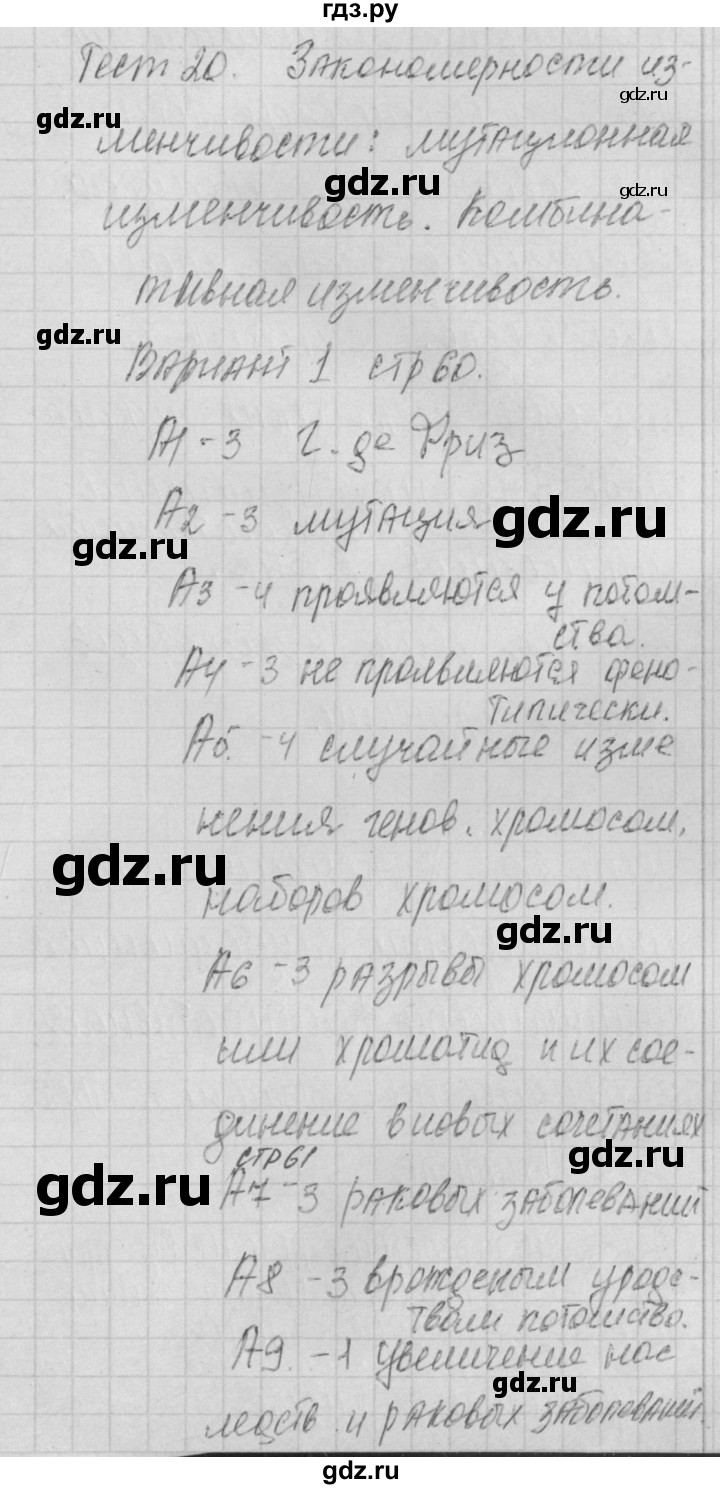 гдз.ру
Тест 20. Закономерности из-
gdz.ru
gdz.ru
менчивости: мутационная
gdz.ru
gdz.ru
изменчивость. Комбина-
тивная изменчивость.
gdz.ru
Вариант 1 стр 60.
А1 - 3 Г. де Фриз
А2 - 3 мутация
gdz.ru
gdz.ru
А3 - 4 проявляются у потом-
ства.
А4 - 3 не проявляются фено-
типически.
А5. - 4 случайные изме
нения генов, хромосом,
gdz.ru
наборов хромосом.
gdz.ru
А6 - 3 разрывы хромосом
или хроматид и их сое-
динение в новых сочетаниях
стр 61
gdz.ru
gdz.ru
А7 - 3 раковых заболеваний
А8 - 3 врожденым уродс-
твам потомства.
А9. - 1 увеличение нас
gdz.ru
ледств. и раковых заболеваний.
gdz.ru